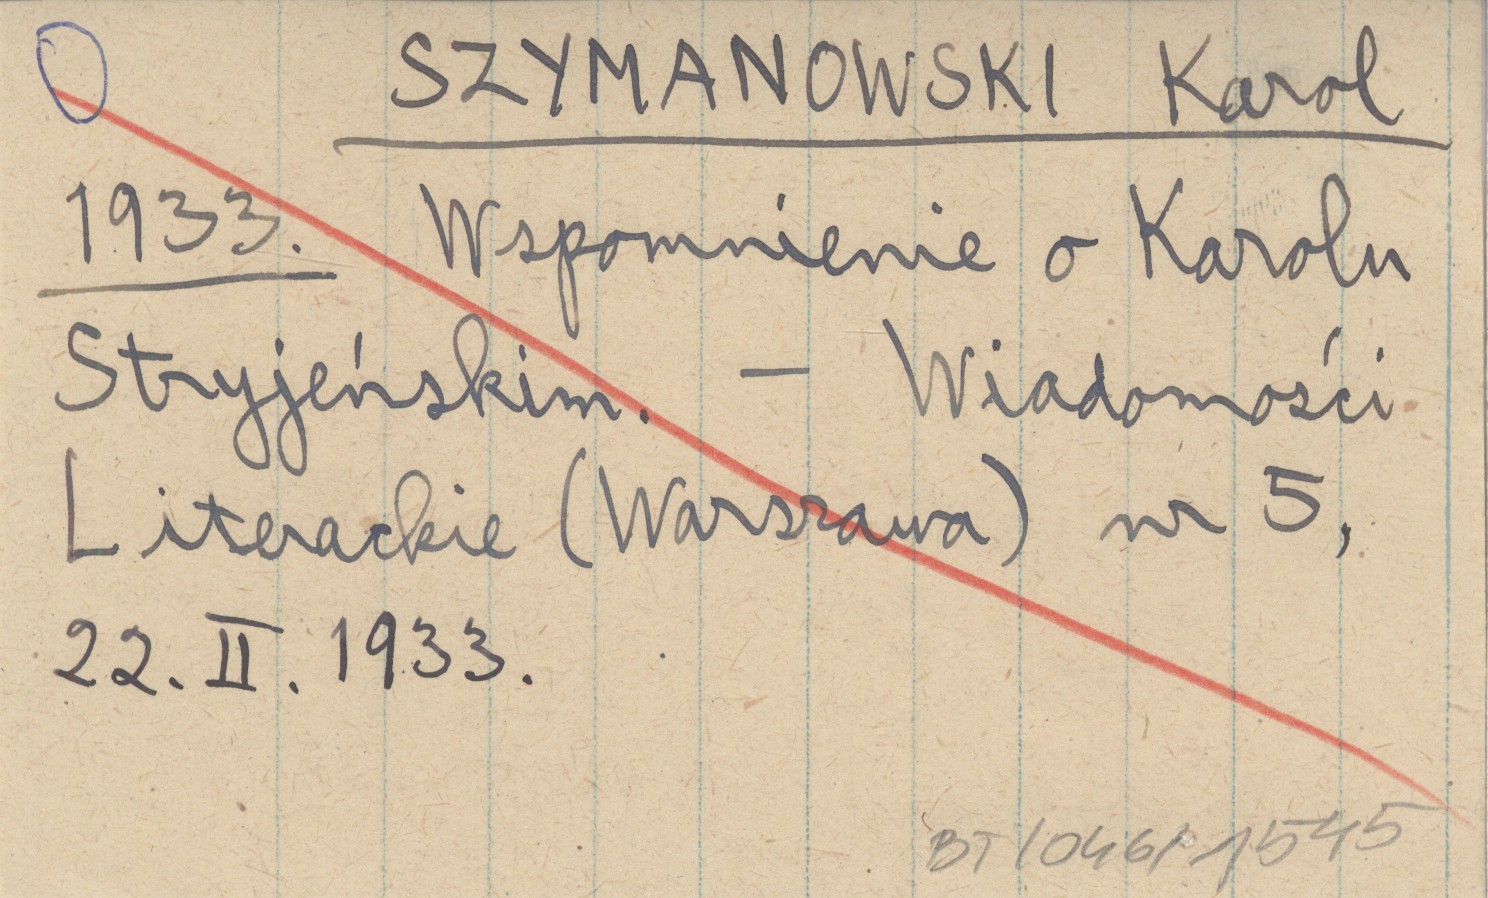 SZYMANOWSKI Karol
1933. Wspomnienie o Karolu
Stryjeńskim. — Wiadomości
Literackie (Warszawa) nr 5,
22. II. 1933.
BT/046/1545